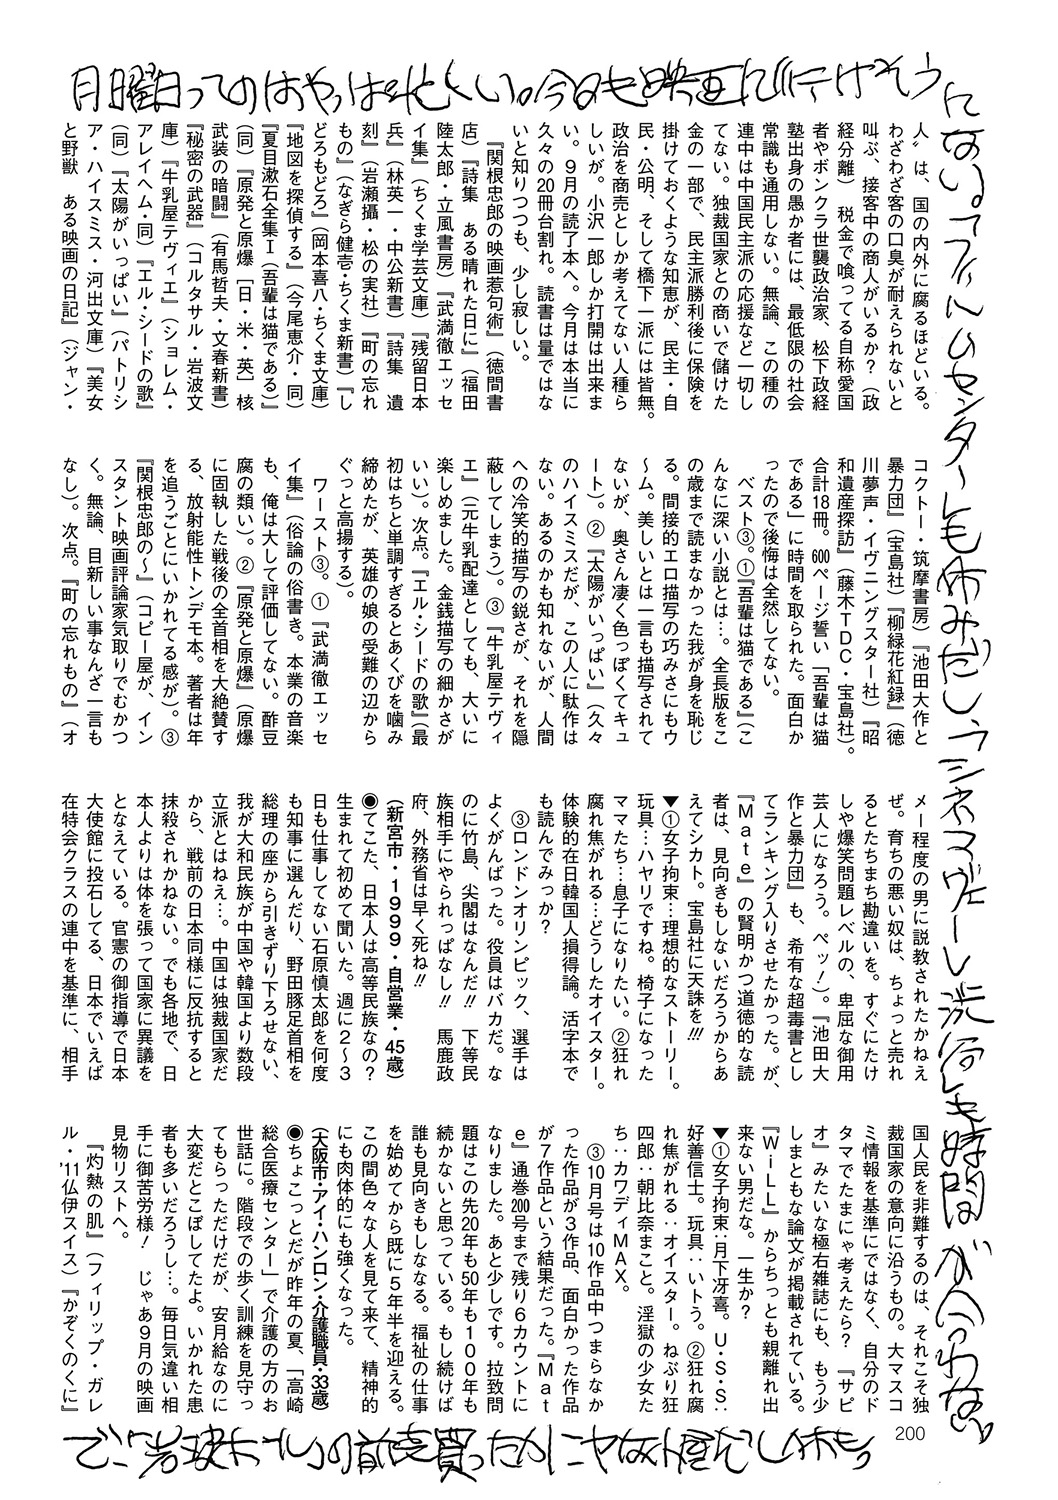 月曜日ってのはやっぱ忙しい。今日も映画に行けそう
にない。フィルムセンターも休みだし、シネマヴェーレ渋谷も時間が合わない
人〟は、国の内外に腐るほどいる。
わざわざ客の口臭が耐えられないと
叫ぶ、接客中の商人がいるか？（政
経分離）　税金で喰ってる自称愛国
者やボンクラ世襲政治家、松下政経
塾出身の愚か者には、最低限の社会
常識も通用しない。無論、この種の
連中は中国民主派の応援など一切し
てない。独裁国家との商いで儲けた
金の一部で、民主派勝利後に保険を
掛けておくような知恵が、民主・自
民・公明、そして橋下一派には皆無。
政治を商売としか考えてない人種ら
しいが。小沢一郎しか打開は出来ま
い。９月の読了本へ。今月は本当に
久々の20冊台割れ。読書は量ではな
いと知りつつも、少し寂しい。
『関根忠郎の映画惹句術』（徳間書
店）『詩集　ある晴れた日に』（福田
陸太郎・立風書房）『武満徹エッセ
イ集』（ちくま学芸文庫）『残留日本
兵』（林英一・中公新書）『詩集　遺
刻』（岩瀬攝・松の実社）『町の忘れ
もの』（なぎら健壱・ちくま新書）『し
どろもどろ』（岡本喜八・ちくま文庫）
『地図を探偵する』（今尾恵介・同）
『夏目漱石全集Ⅰ（吾輩は猫である）』
（同）『原発と原爆［日・米・英］核
武装の暗闘』（有馬哲夫・文春新書）
『秘密の武器』（コルタサル・岩波文
庫）『牛乳屋テヴィエ』（ショレム・
アレイヘム・同）『エル・シードの歌』
（同）『太陽がいっぱい』（パトリシ
ア・ハイスミス・河出文庫）『美女
と野獣　ある映画の日記』（ジャン・
コクトー・筑摩書房）『池田大作と
暴力団』（宝島社）『柳緑花紅録』（徳
川夢声・イヴニングスター社）『昭
和遺産探訪』（藤木ＴＤＣ・宝島社）。
合計18冊。600ページ誓い「吾輩は猫
である」に時間を取られた。面白か
ったので後悔は全然してない。
ベスト③。①『吾輩は猫である』（こ
んなに深い小説とは…。全長版をこ
の歳まで読まなかった我が身を恥じ
る。間接的エロ描写の巧みさにもウ
〜ム。美しいとは一言も描写されて
ないが、奥さん凄く色っぽくてキュ
ート）。②『太陽がいっぱい』（久々
のハイスミスだが、この人に駄作は
ない。あるのかも知れないが、人間
への冷笑的描写の鋭さが、それを隠
蔽してしまう）。③『牛乳屋テヴィ
エ』（元牛乳配達としても、大いに
楽しめました。金銭描写の細かさが
いい）。次点。『エル・シードの歌』（最
初はちと単調すぎるとあくびを噛み
締めたが、英雄の娘の受難の辺から
ぐっと高揚する）。
ワースト③。①『武満徹エッセ
イ集』（俗論の俗書き。本業の音楽
も、俺は大して評価してない。酢豆
腐の類い）。②『原発と原爆』（原爆
に固執した戦後の全首相を大絶賛す
る、放射能性トンデモ本。著者は年
を追うごとにいかれてる感が）。③
『関根忠郎の〜』（コピー屋が、イン
スタント映画評論家気取りでむかつ
く。無論、目新しい事なんざ一言も
なし）。次点。『町の忘れもの』（オ
メー程度の男に説教されたかねえ
ぜ。育ちの悪い奴は、ちょっと売れ
るとたちまち勘違いを。すぐにたけ
しや爆笑問題レベルの、卑屈な御用
芸人になろう。ペッ！）。『池田大
作と暴力団』も、希有な超毒書とし
てランキング入りさせたかった。が、
『Ｍａｔｅ』の賢明かつ道徳的な読
者は、見向きもしないだろうからあ
えてシカト。宝島社に天誅を!!!
▼①女子拘束…理想的なストーリー。
玩具…ハヤリですね。椅子になった
ママたち…息子になりたい。②狂れ
腐れ焦がれる…どうしたオイスター。
体験的在日韓国人損得論。活字本で
も読んでみっか？
③ロンドンオリンピック、選手は
よくがんばった。役員はバカだ。な
のに竹島、尖閣はなんだ!!　下等民
族相手にやられっぱなし!!　馬鹿政
府、外務省は早く死ね!!
（新宮市・１９９９・自営業・45歳）
◉てこた、日本人は高等民族なの？
生まれて初めて聞いた。週に２〜３
日も仕事してない石原慎太郎を何度
も知事に選んだり、野田豚足首相を
総理の座から引きずり下ろせない、
我が大和民族が中国や韓国より数段
立派とはねえ…。中国は独裁国家だ
から、戦前の日本同様に反抗すると
抹殺されかねない。でも各地で、日
本人よりは体を張って国家に異議を
となえている。官憲の御指導で日本
大使館に投石してる、日本でいえば
在特会クラスの連中を基準に、相手
国人民を非難するのは、それこそ独
裁国家の意向に沿うもの。大マスコ
ミ情報を基準にではなく、自分のド
タマでたまにゃ考えたら？　『サピ
オ』みたいな極右雑誌にも、もう少
しまともな論文が掲載されている。
『ＷｉＬＬ』からちっとも親離れ出
来ない男だな。一生か？
▼①女子拘束‥月下冴喜。Ｕ・Ｓ・Ｓ‥
好善信士。玩具‥いトう。②狂れ腐
れ焦がれる‥オイスター。ねぶり狂
四郎‥朝比奈まこと。淫獄の少女た
ち‥カワディＭＡＸ。
③10月号は10作品中つまらなか
った作品が３作品、面白かった作品
が７作品という結果だった。『Ｍａｔ
ｅ』通巻200号まで残り６カウントに
なりました。あと少しです。拉致問
題はこの先20年も50年も１００年も
続かないと思っている。もし続けば
誰も見向きもしなななる。福祉の仕事
を始めてから既に５年半を迎える。
この間色々な人を見て来て、精神的
にも肉体的にも強くなった。
（大阪市・アイ・ハンロン・介護職員・33歳）
◉ちょこっとだが昨年の夏、「高崎
総合医療センター」で介護の方のお
世話に。階段での歩く訓練を見守っ
てもらっただけだが、安月給なのに
大変だとこぼしてたよ。いかれた患
者も多いだろうし…。毎日気違い相
手に御苦労様！　じゃあ９月の映画
見物リストへ。
『灼熱の肌』（フィリップ・ガレ
ル・'11仏伊スイス）『かぞくのくに』
200